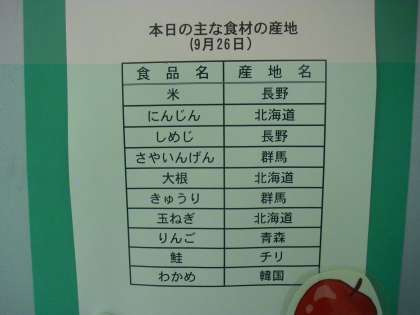 本日の主な食材の産地
(9月26日)
食品名 産地名
米 長野
にんじん 北海道
しめじ 長野
さやいんげん 群馬
大根 北海道
きゅうり 群馬
玉ねぎ 北海道
りんご 青森
鮭 チリ
わかめ 韓国